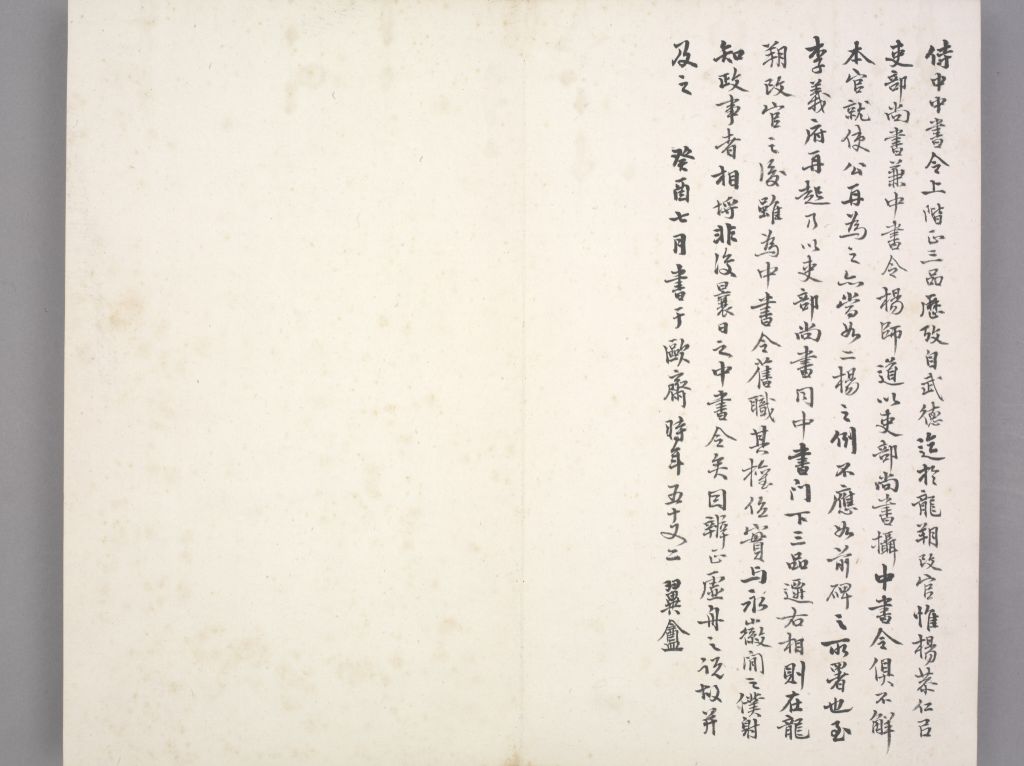 侍中中書令上階正三品歷攷自武德迄於龍朔改官惟楊恭仁以
吏部尚書兼中書令楊師道以吏部尚書攝中書令俱不解
本官就使公再為之亦當如二楊之例不應如前碑之所署也至
李義府再起乃以吏部尚書同中書門下三品遷右相則在龍
朔改官之後雖為中書令舊職其權位實与永徽間之僕射
知政事者相埒非復曩日之中書令矣因辨正虛舟之說故并
及之 癸酉七月書于歐齋時年五十又二 翼盦